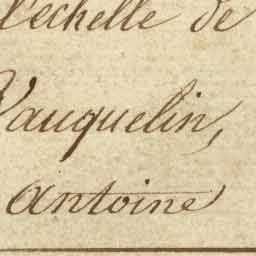 l'echelle de
Vauquelin,
antoine